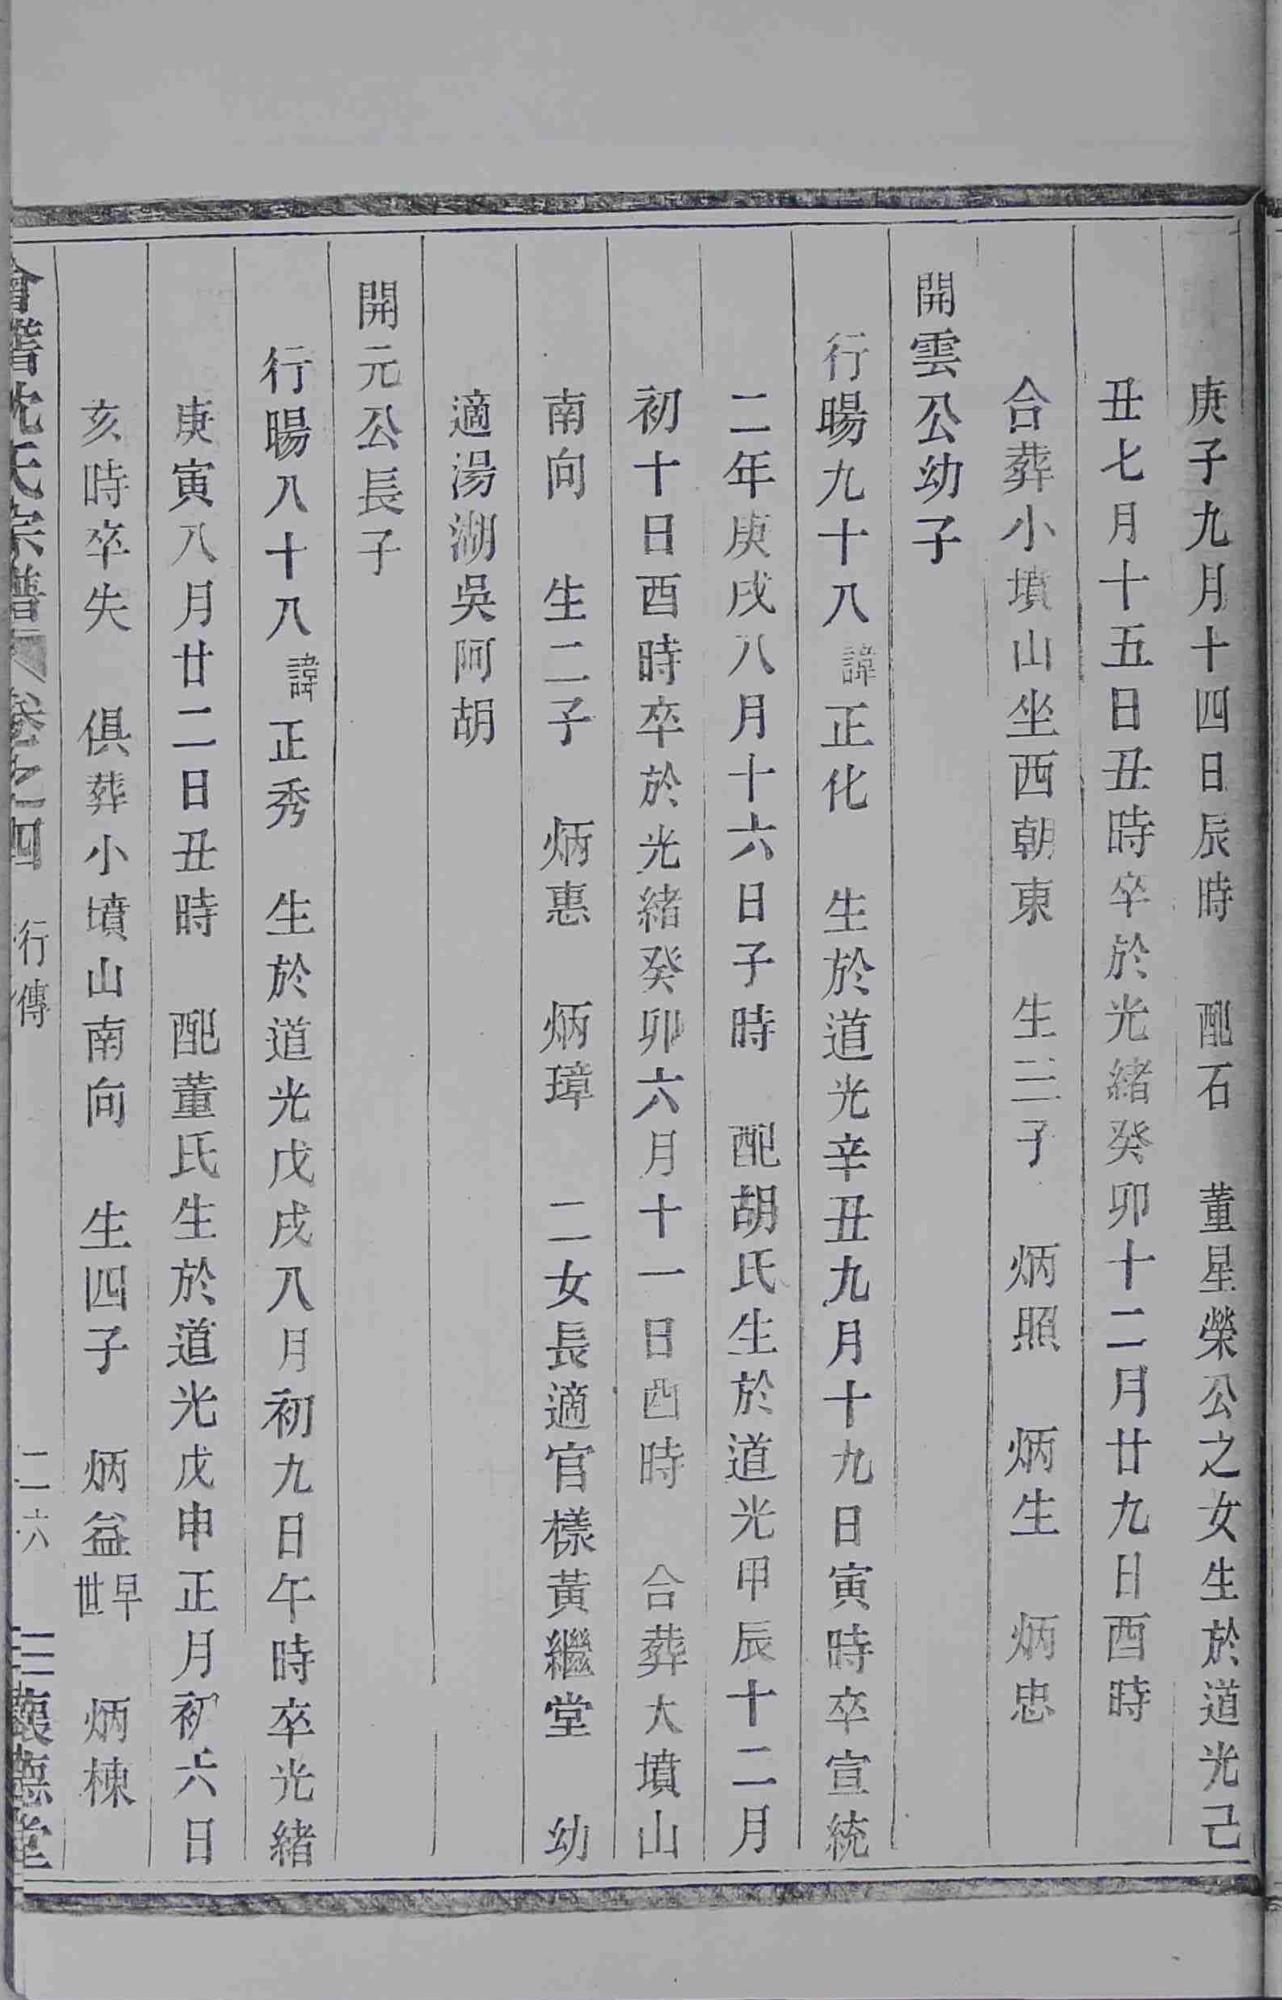 庚子九月十四日辰時　配石　董星榮公之女生於道光己
丑七月十五日丑時卒於光緒癸卯十二月廿九日酉時
合葬小墳山坐西朝東　生三子　炳照　炳生　炳忠
開雲公幼子
行暘九十八諱正化　生於道光辛丑九月十九日寅時卒宣統
二年庚戌八月十六日子時　配胡氏生於道光甲辰十二月
初十日酉時卒於光緒癸卯六月十一日酉時　合葬大墳山
南向　生二子　炳惠　炳璋　二女長適官樣黃繼堂　幼
適湯湖吳阿胡
開元公長子
行暘八十八諱正秀　生於道光戊戌八月初九日午時卒光緒
庚寅八月廿二日丑時　配董氏生於道光戊申正月初六日
亥時卒失　俱葬小墳山南向　生四子　炳益早世　炳棟
會稽沈氏宗譜　卷之四　行傳　二六　三讓德堂